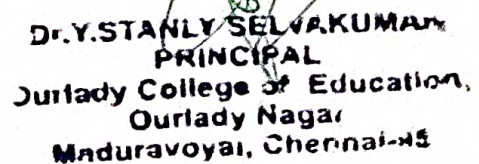 Dr.Y.STANLY SELVAKUMAR
PRINCIPAL
Ourlady College of Education,
Ourlady Nagar
Maduravoyal, Chennai-95